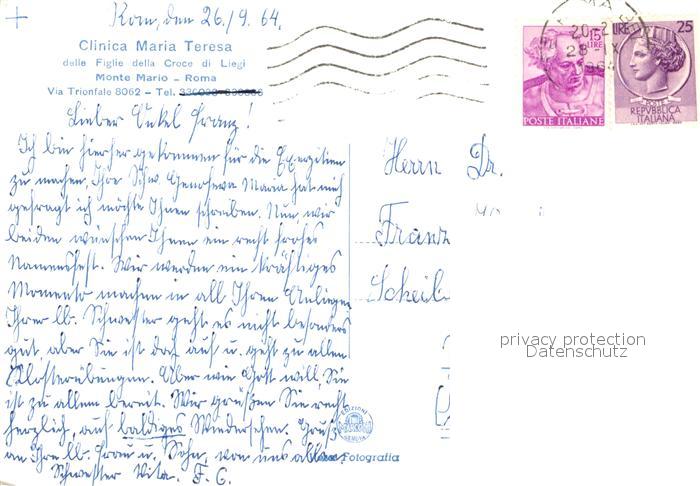 Rom, den 26./9. 64.
Clinica Maria Teresa
delle Figlie della Croce di Liegi
Monte Mario – Roma
Via Trionfale 8062 – Tel.
Lieber Onkel Franz!
Ich bin hierher gekommen für die Exerzitien
zu machen. Ihre Schw. Genoveva Maria hat mich
gefragt ich möchte Ihnen schreiben. Nun wir
beiden wünschen Ihnen ein recht frohes
Namensfest. Wir werden ein kräftiges
Momento machen in all Ihren Anliegen
Ihrer lb. Schwester geht es nicht besonders
gut, aber Sie ist doch auf u. geht zu allen
Klosterübungen. Aber wie Gott will, Sie
ist zu allem bereit. Wir grüßen Sie recht
herzlich, auf baldiges Wiedersehen. Gruß
an Ihre lb. Frau u. Sohn, von uns allen.
Schwester Vita. F. C.
Herrn Dr.
Franz
Scheil
15 LIRE
POSTE ITALIANE
LIRE 25
POSTE
REPVBBLICA
ITALIANA
ROMA
20-2
28-IX
EDIZIONI
GENOVA
Vera Fotografia
privacy protection
Datenschutz